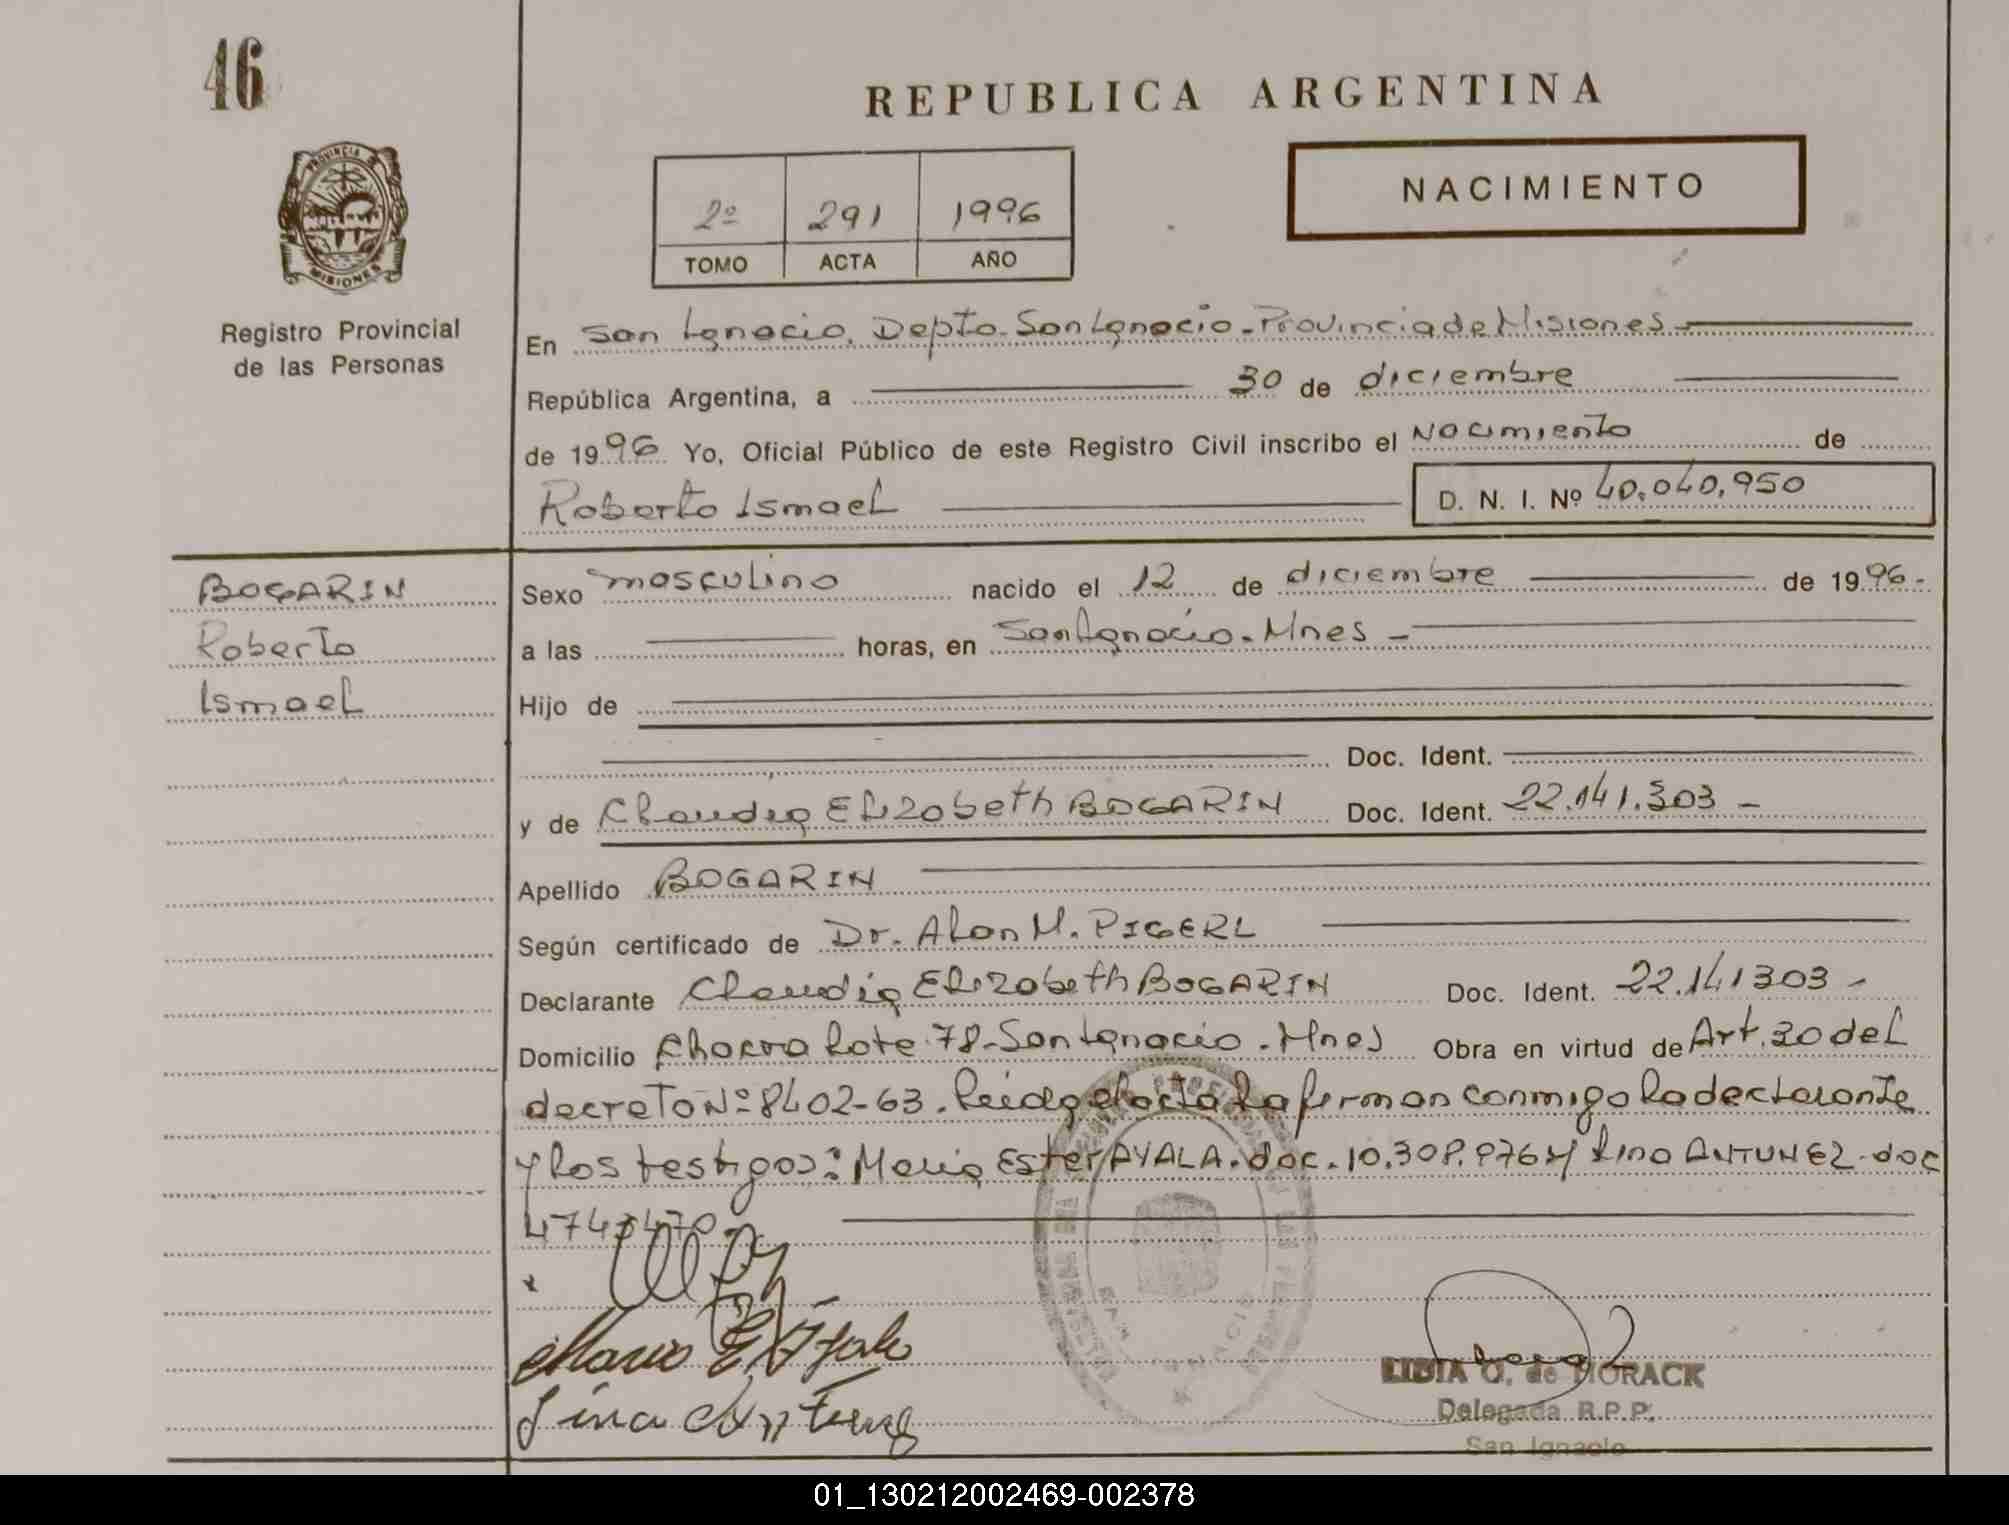 46
REPUBLICA ARGENTINA
NACIMIENTO
2º 291 1996
TOMO ACTA AÑO
PROVINCIA DE
MISIONES
Registro Provincial
de las Personas
En San Ignacio. Depto. San Ignacio - Provincia de Misiones
República Argentina, a 30 de diciembre
de 1996 Yo, Oficial Público de este Registro Civil inscribo el Nacimiento de
Roberto Ismael D. N. I. Nº 40.040.950
BOGARIN
Roberto
Ismael
Sexo masculino nacido el 12 de diciembre de 1996.
a las horas, en San Ignacio. Mnes
Hijo de
Doc. Ident.
y de Claudia Elizabeth BOGARIN Doc. Ident. 22.141.303
Apellido BOGARIN
Según certificado de Dr. Alan M. PIGERL
Declarante Claudia Elizabeth BOGARIN Doc. Ident. 22.141303
Domicilio Chacra Lote 78 - San Ignacio. Mnes Obra en virtud de Art. 30 del
decreto Nº 8402-63. Leida el acta la firman conmigo la declarante
y los testigos: Maria Ester AYALA. doc. 10.308.976 y Lino ANTUNEZ. doc
Maria E Ayala
Lino Antunez
LIDIA O. de HORACK
Delegada R.P.P.
San Ignacio
01_130212002469-002378